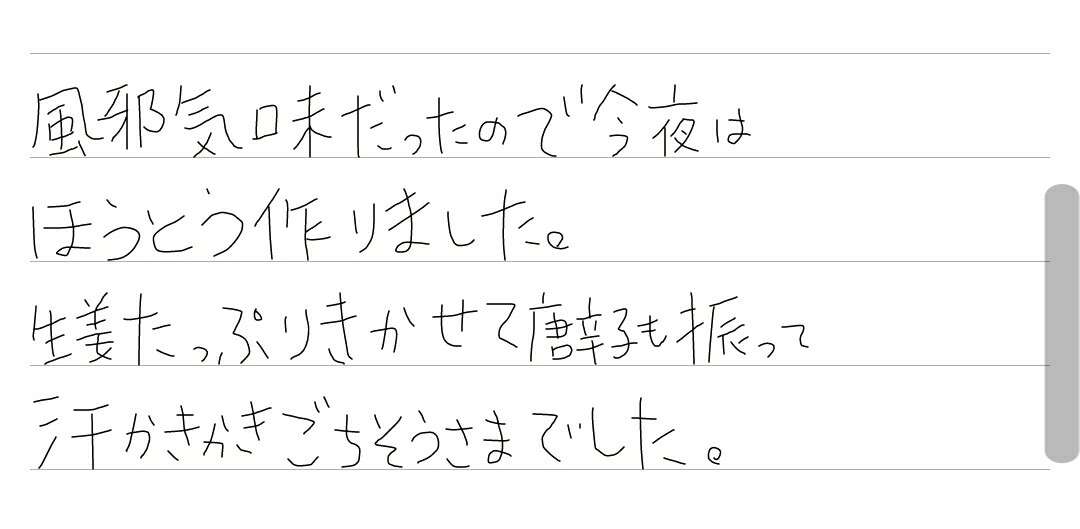 風邪気味だったので今夜は
ほうとう作りました。
生姜たっぷりきかせて唐辛子も振って
汗かきかきごちそうさまでした。